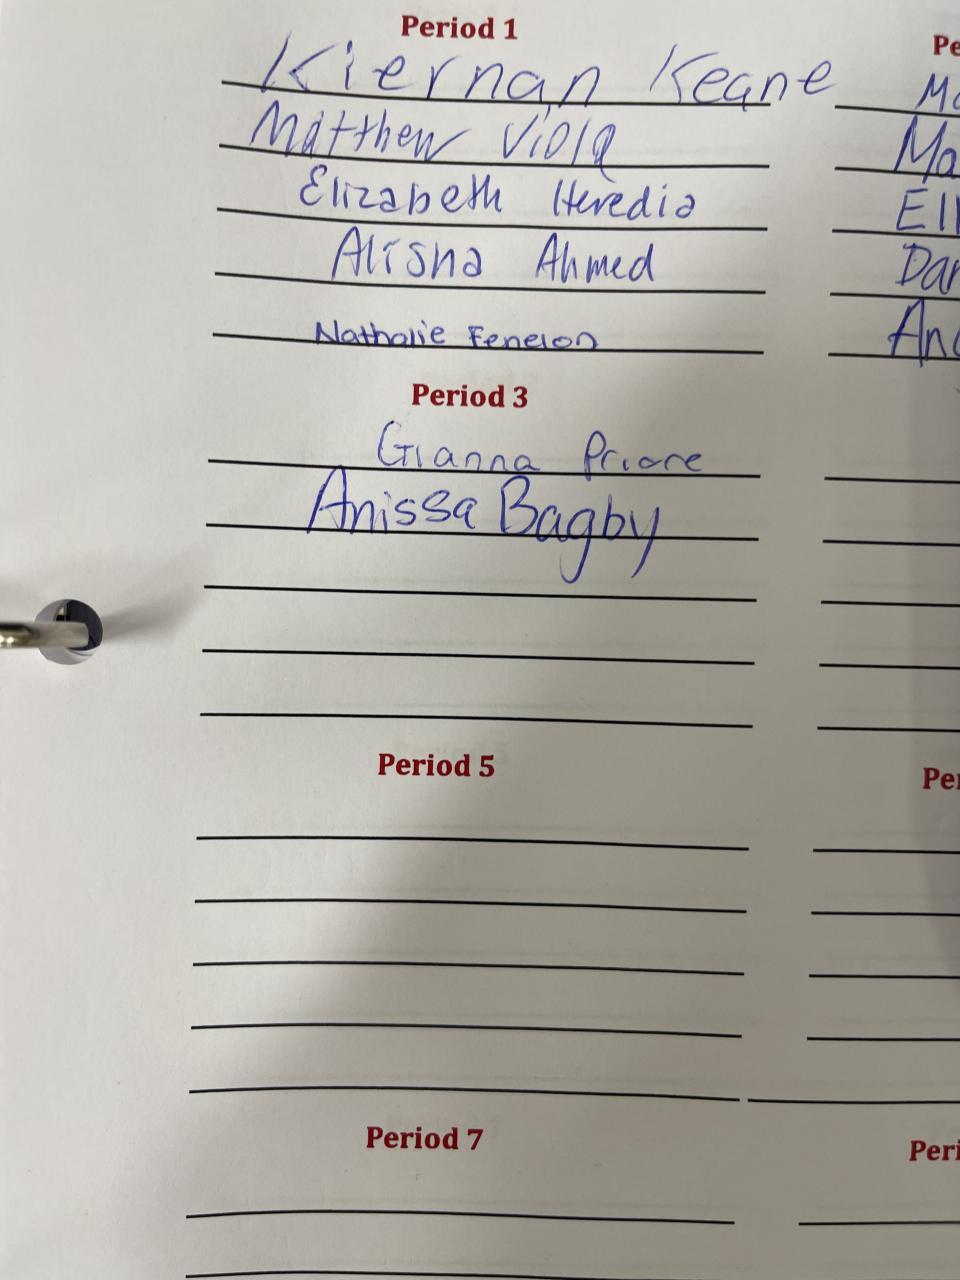 Period 1
Kiernan Keane
Matthew Viola
Elizabeth Heredia
Alisha Ahmed
Nathalie Fenelon
Period 3
Gianna Priore
Anissa Bagby
Period 5
Period 7
Pe
Ma
Ell
Dar
Per
Peri